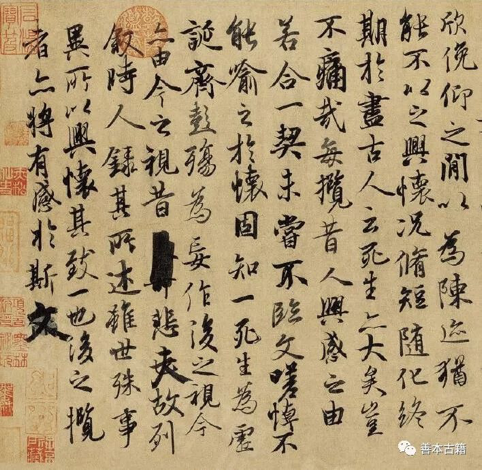 欣俛仰之閒以為陳迹猶不
能不以之興懷況脩短隨化終
期於盡古人云死生亦大矣豈
不痛哉每攬昔人興感之由
若合一契未嘗不臨文嗟悼不
能喻之於懷固知一死生為虛
誕齊彭殤為妄作後之視今
亦由今之視昔悲夫故列
敘時人錄其所述雖世殊事
異所以興懷其致一也後之攬
者亦將有感於斯文
善本古籍